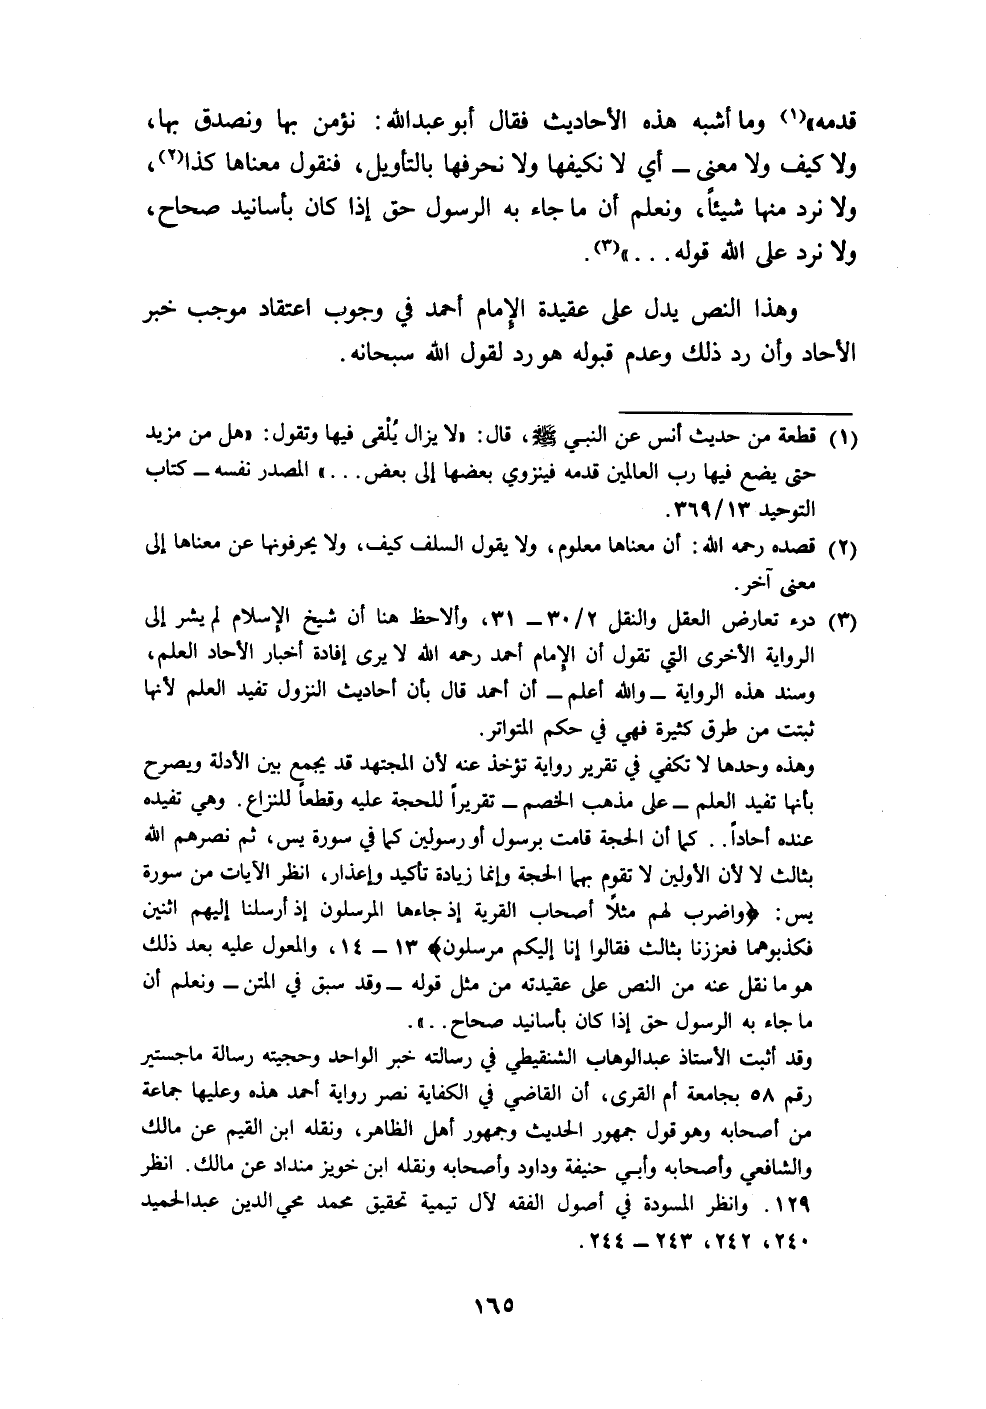 قدمه»(١) وما أشبه هذه الأحاديث فقال أبو عبدالله: نؤمن بها ونصدق بها،
ولا كيف ولا معنى ــ أي لا نكيفها ولا نحرفها بالتأويل، فنقول معناها كذا(٢)،
ولا نرد منها شيئاً، ونعلم أن ما جاء به الرسول حق إذا كان بأسانيد صحاح،
ولا نرد على الله قوله...»(٣).
وهذا النص يدل على عقيدة الإمام أحمد في وجوب اعتقاد موجب خبر
الأحاد وأن رد ذلك وعدم قبوله هو رد لقول الله سبحانه.
(١) قطعة من حديث أنس عن النبي ﷺ، قال: «لا يزال يُلْقى فيها وتقول: «هل من مزيد
حتى يضع فيها رب العالمين قدمه فينزوي بعضها إلى بعض...» المصدر نفسه ــ كتاب
التوحيد ٣٦٩/١٣.
(٢) قصده رحمه الله: أن معناها معلوم، ولا يقول السلف كيف، ولا يحرفونها عن معناها إلى
معنى آخر.
(٣) درء تعارض العقل والنقل ٣٠/٢ ــ ٣١، وألاحظ هنا أن شيخ الإسلام لم يشر إلى
الرواية الأخرى التي تقول أن الإمام أحمد رحمه الله لا يرى إفادة أخبار الأحاد العلم،
وسند هذه الرواية ــ والله أعلم ــ أن أحمد قال بأن أحاديث النزول تفيد العلم لأنها
ثبتت من طرق كثيرة فهي في حكم المتواتر.
وهذه وحدها لا تكفي في تقرير رواية تؤخذ عنه لأن المجتهد قد يجمع بين الأدلة ويصرح
بأنها تفيد العلم ــ على مذهب الخصم ــ تقريراً للحجة عليه وقطعاً للنزاع. وهي تفيده
عنده أحاداً.. كما أن الحجة قامت برسول أو رسولين كما في سورة يس، ثم نصرهم الله
بثالث لا لأن الأولين لا تقوم بهما الحجة وإنما زيادة تأكيد وإعذار، انظر الآيات من سورة
يس: ﴿واضرب لهم مثلاً أصحاب القرية إذ جاءها المرسلون إذ أرسلنا إليهم اثنين
فكذبوهما فعززنا بثالث فقالوا إنا إليكم مرسلون﴾ ١٣ ــ ١٤، والمعول عليه بعد ذلك
هو ما نقل عنه من النص على عقيدته من مثل قوله ــ وقد سبق في المتن ــ ونعلم أن
ما جاء به الرسول حق إذا كان بأسانيد صحاح..».
وقد أثبت الأستاذ عبدالوهاب الشنقيطي في رسالته خبر الواحد وحجيته رسالة ماجستير
رقم ٥٨ بجامعة أم القرى، أن القاضي في الكفاية نصر رواية أحمد هذه وعليها جماعة
من أصحابه وهو قول جمهور الحديث وجمهور أهل الظاهر، ونقله ابن القيم عن مالك
والشافعي وأصحابه وأبي حنيفة وداود وأصحابه ونقله ابن خويز منداد عن مالك. انظر
١٢٩. وانظر المسودة في أصول الفقه لآل تيمية تحقيق محمد محي الدين عبدالحميد
٢٤٠، ٢٤٢، ٢٤٣ ــ ٢٤٤.
١٦٥